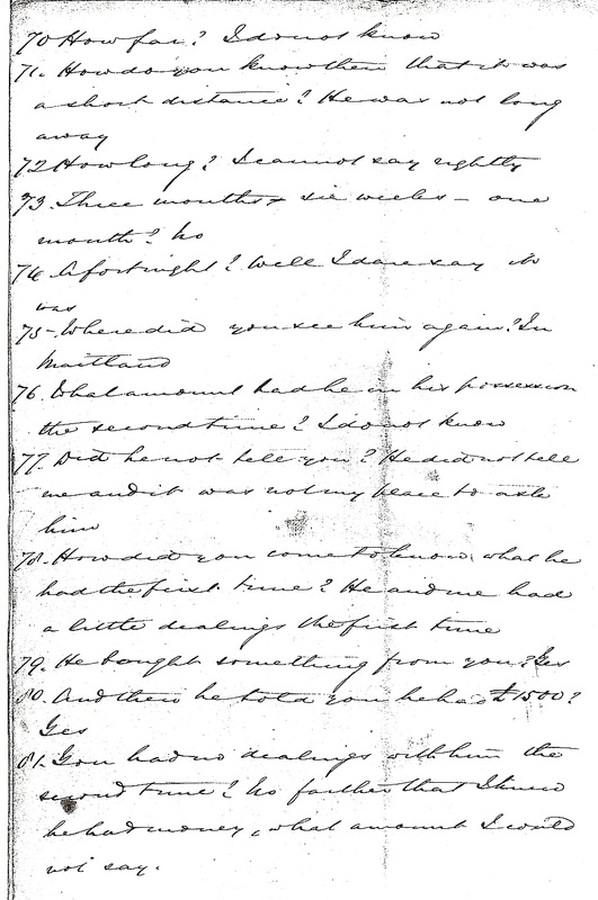 70 How far? I do not know
71. How do you know then that it was
a short distance? He was not long
away
72 How long? I cannot say rightly
73. Three months & six weeks – one
month? No
74. A fortnight? Well I dare say it
was
75 – Where did you see him again? In
Maitland
76. What amount had he in his possession
the second time? I do not know
77. Did he not tell you? He did not tell
me and it was not my place to ask
him
78. How did you come to know what he
had the first time? He and me had
a little dealings the first time
79. He bought something from you? Yes
80. And then he told you he had £1500?
Yes
81. You had no dealings with him the
second time? No farther that I knew
he had money, what amount I could
not say.